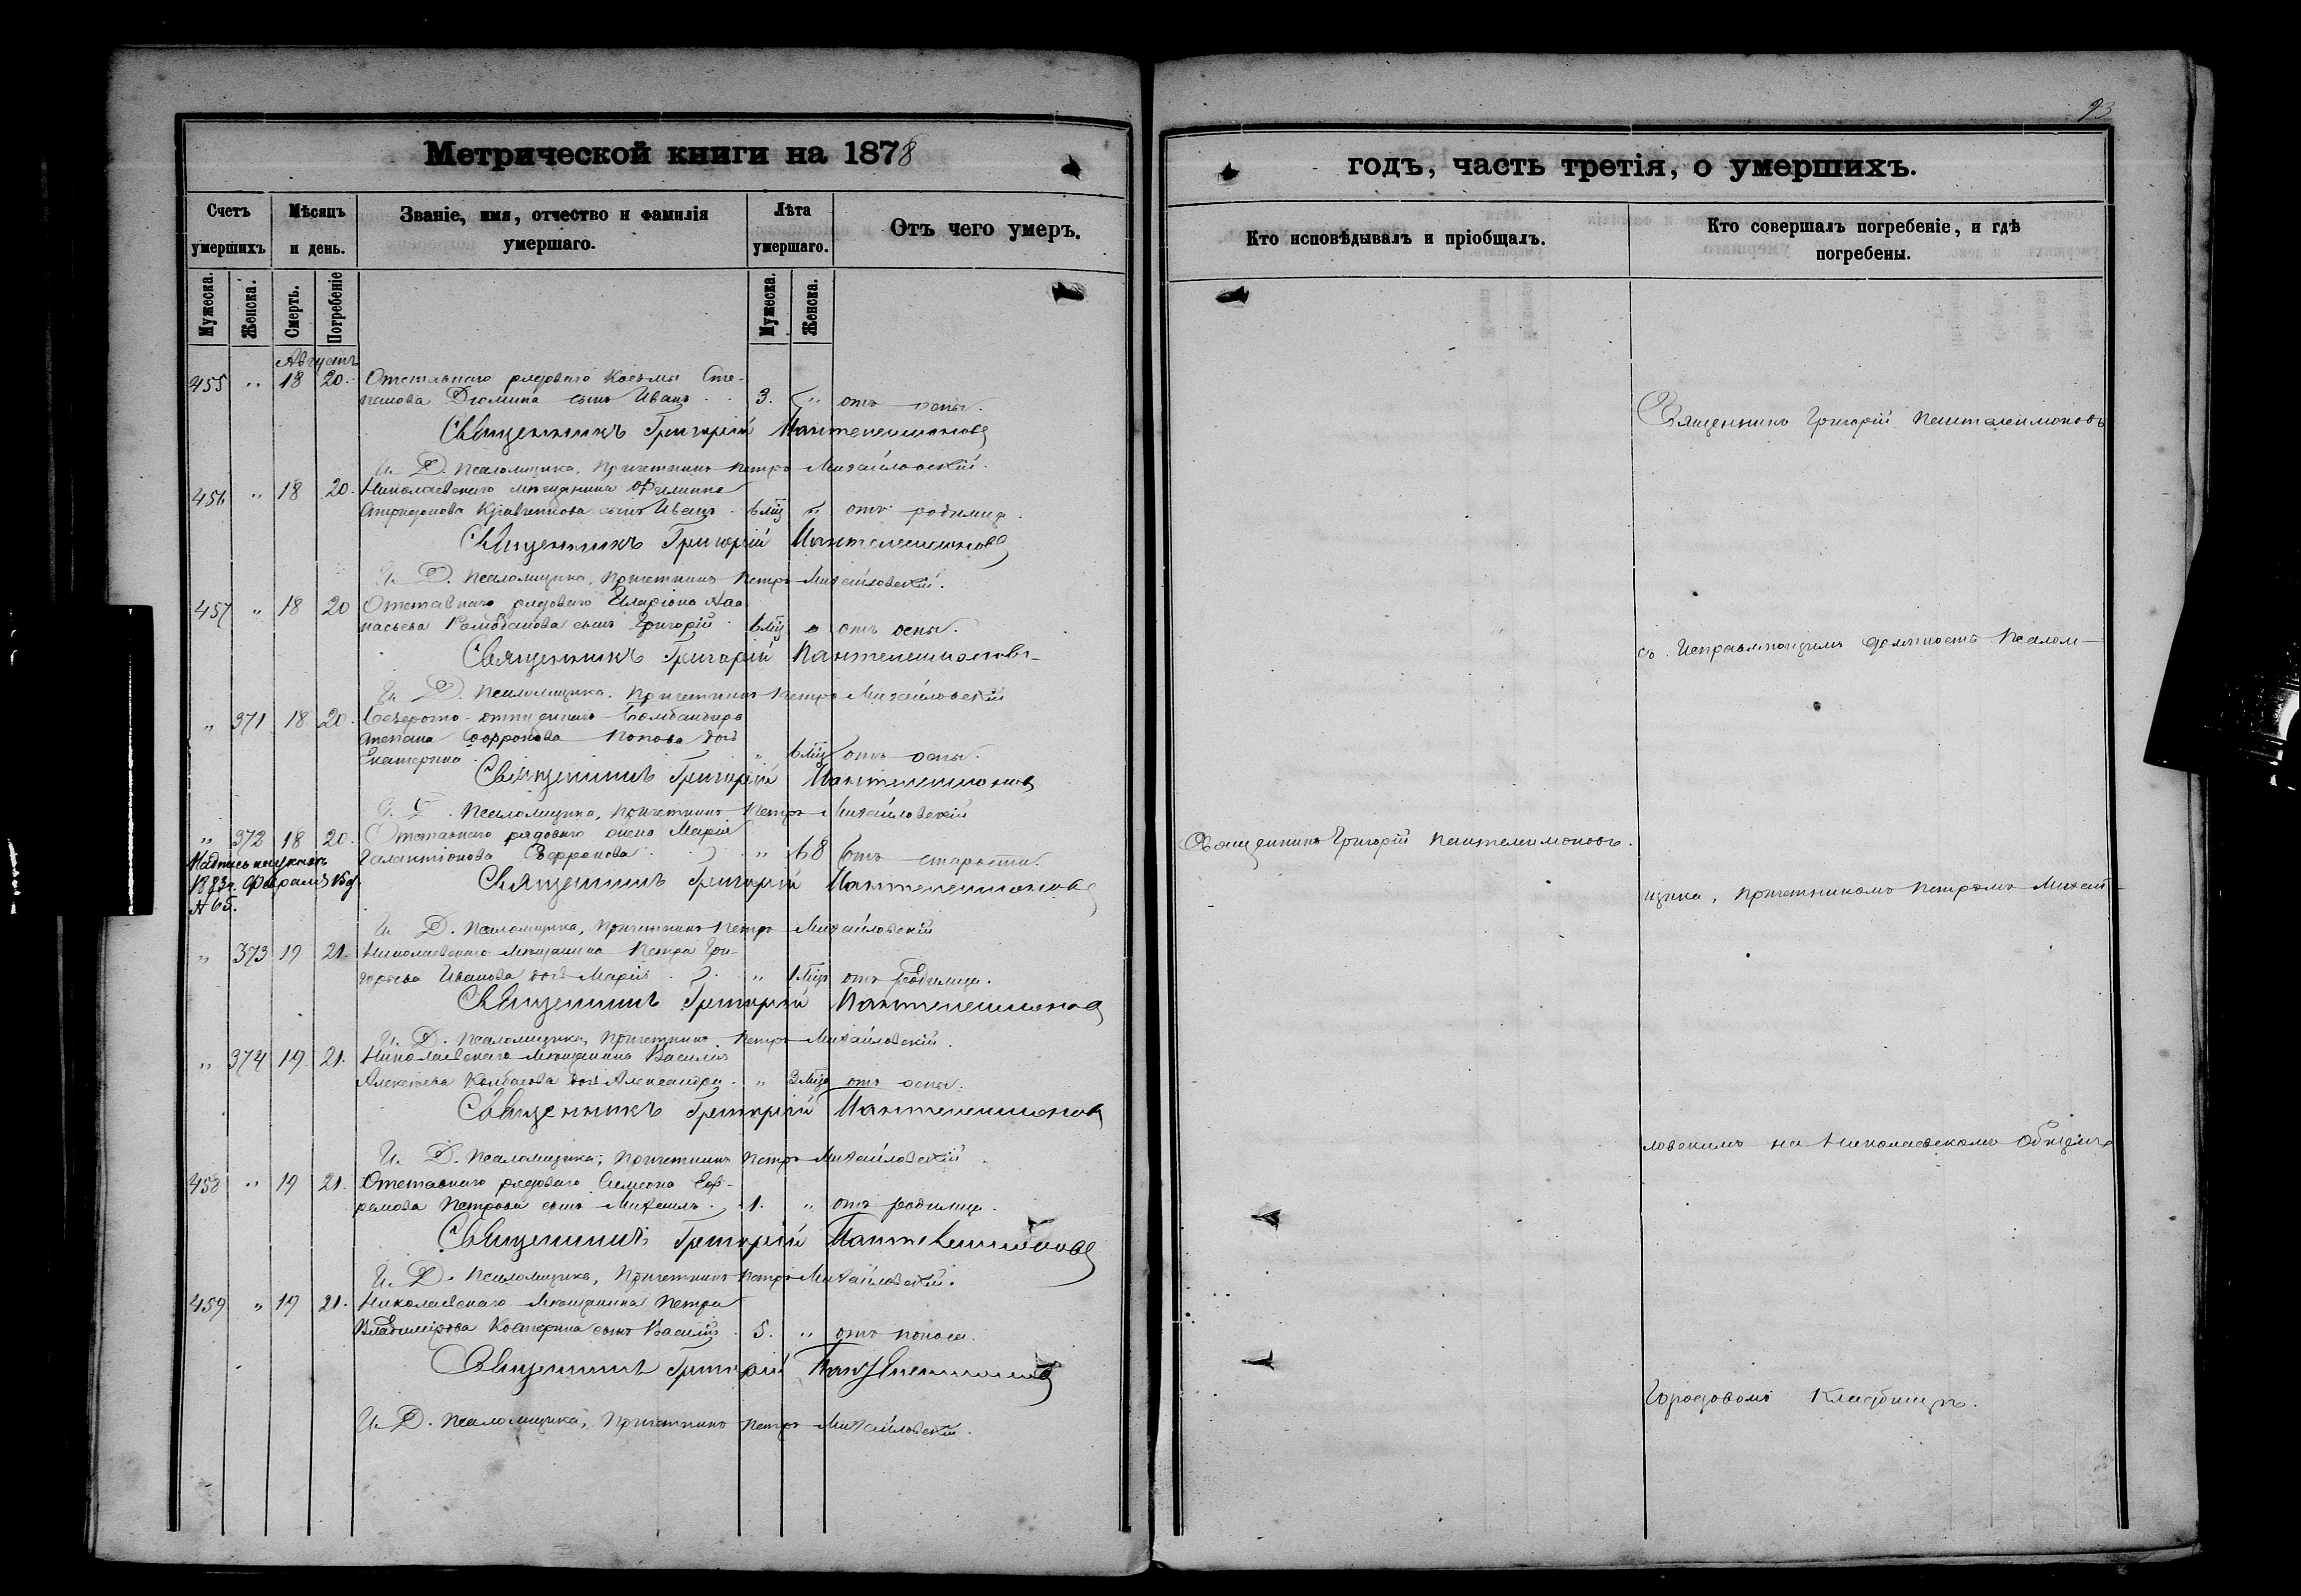 93
Метрической книги на 1878
годъ, часть третія, о умершихъ.
Счетъ умершихъ
Мѣсяцъ и день.
Званіе, имя, отчество и фамилія умершаго.
Лѣта умершаго.
Отъ чего умеръ.
Кто исповѣдывалъ и пріобщалъ.
Кто совершалъ погребеніе, и гдѣ погребены.
Мужеска. Женска. Смерть. Погребеніе Мужеска. Женска.
Августъ
455 " 18 20. Отставнаго рядоваго Косьмы Сте-
панова Дюмина сынъ Иванъ 3. " отъ оспы.
Священникъ Григорій Пантелеимоновъ
И. Д. Псаломщика, Причетникъ Петръ Михайловскій.
456 " 18 20. Николаевскаго мѣщанина Филиппа
Спиридонова Кравченкова сынъ Иванъ 6 мѣс " отъ родимца.
Священникъ Григорій Пантелеимоновъ
И. Д. Псаломщика, Причетникъ Петръ Михайловскій.
457 " 18 20 Отставнаго рядоваго Иларіона Аѳа-
насьева сынъ Григорій 6 мѣс " отъ оспы.
Священникъ Григорій Пантелеимоновъ
И. Д. Псаломщика, Причетникъ Петръ Михайловскій
" 371 18. 20. Безсрочно-отпускнаго Бомбандира
Степана Софронова Попова дочь
Екатерина " 6 мѣс отъ оспы.
Священникъ Григорій Пантелеимоновъ
И. Д. Псаломщика, Причетникъ Петръ Михайловскій
" 372 18 20. Отставнаго рядоваго жена Марія
Галактіонова Софронова " 68 отъ старости.
Надпись по указу
1883 г. Февраля 15 д.
№ 65.
Священникъ Григорій Пантелеимоновъ
И. Д. Псаломщика, Причетникъ Петръ Михайловскій
" 373 19 21. Николаевскаго мѣщанина Петра Гри-
горьева Иванова дочь Марія " 1 мѣс отъ родимца.
Священникъ Григорій Пантелеимоновъ
И. Д. Псаломщика, Причетникъ Петръ Михайловскій.
" 374 19. 21. Николаевскаго мѣщанина Василія
Алексѣева Колбасова дочь Александра " 3 мѣс отъ оспы.
Священникъ Григорій Пантелеимоновъ
И. Д. Псаломщика, Причетникъ Петръ Михайловскій.
458 " 19 21. Отставнаго рядоваго Симеона Еф-
ремова Петрова сынъ Михаилъ 1. " отъ родимца.
Священникъ Григорій Пантелеимоновъ
И. Д. Псаломщика, Причетникъ Петръ Михайловскій.
459 " 19 21. Николаевскаго мѣщанина Петра
Владимірова Костерина сынъ Василій 5. " отъ поноса.
Священникъ Григорій Пантелеимоновъ
И. Д. Псаломщика, Причетникъ Петръ Михайловскій.
Священникъ Григорій Пантелеимоновъ.
Священникъ Григорій Пантелеимоновъ
съ Исправляющимъ должность Псалом-
щика, Причетникомъ Петромъ Михай-
ловскимъ на Николаевскомъ Общемъ
Городовомъ Кладбищѣ.